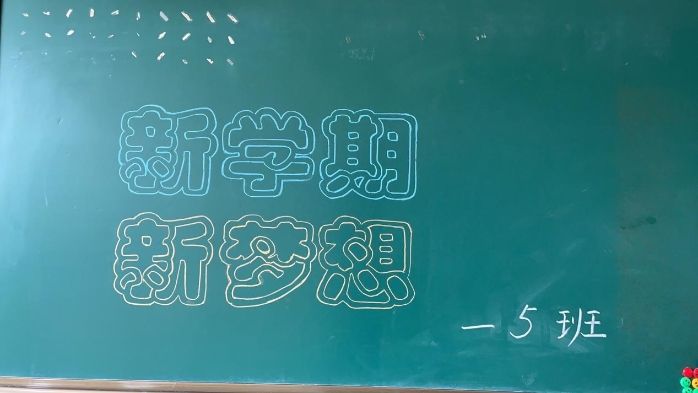 新学期
新梦想
一5班